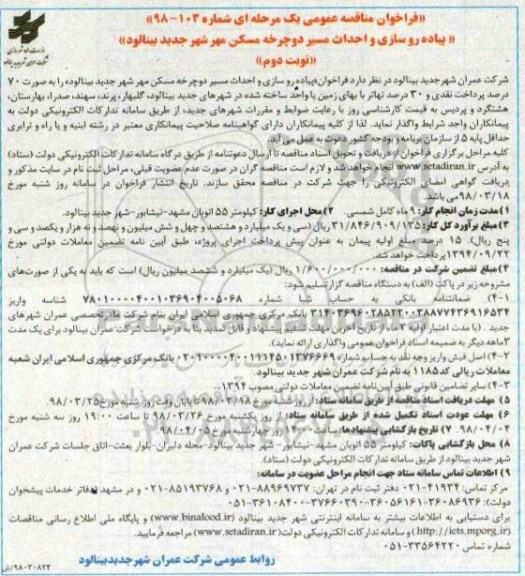 «فراخوان مناقصه عمومی یک مرحله ای شماره ۱۰۳-۹۸»
« پیاده رو سازی و احداث مسیر دوچرخه مسکن مهر شهر جدید بینالود»
«نوبت دوم»
شرکت عمران شهر جدید بینالود در نظر دارد فراخوان «پیاده رو سازی و احداث مسیر دوچرخه مسکن مهر شهر جدید بینالود» را به صورت ۷۰
درصد پرداخت نقدی و ۳۰ درصد تهاتر با بهای زمین یا واحد ساخته شده در شهرهای جدید بینالود، گلبهار، پرند، سهند، صدرا، بهارستان،
هشتگرد و پردیس به قیمت کارشناسی روز با رعایت ضوابط و مقررات شهرهای جدید، از طریق سامانه تدارکات الکترونیکی دولت به
پیمانکاران واجد شرایط واگذار نماید. لذا از کلیه پیمانکاران دارای گواهینامه صلاحیت پیمانکاری معتبر در رشته ابنیه و یا راه و ترابری
حداقل پایه ۵ از سازمان برنامه و بودجه کشور دعوت به عمل می آید.
کلیه مراحل برگزاری فراخوان از دریافت و تحویل اسناد مناقصه تا ارسال دعوتنامه از طریق درگاه سامانه تدارکات الکترونیکی دولت (ستاد)
به آدرس www.setadiran.ir انجام خواهد شد و لازم است مناقصه گران در صورت عدم عضویت قبلی، مراحل ثبت نام در سایت مذکور و
دریافت گواهی امضای الکترونیکی را جهت شرکت در مناقصه محقق سازند. تاریخ انتشار فراخوان در سامانه روز شنبه مورخ
۹۸/۰۳/۱۸ می باشد.
۱) مدت زمان انجام کار: ۹ ماه کامل شمسی. ۲) محل اجرای کار: کیلومتر ۵۵ اتوبان مشهد-نیشابور-شهر جدید بینالود.
۳) مبلغ برآورد کل کار: ۳۱/۸۴۶/۹۰۹/۱۳۵ ریال (سی و یک میلیارد و هشتصد و چهل و شش میلیون و نهصد و نه هزار و یکصد و سی و
پنج ریال). ۱۵ درصد مبلغ اولیه پیمان به عنوان پیش پرداخت اجرای پروژه، طبق آیین نامه تضمین معاملات دولتی مورخ
۱۳۹۴/۰۹/۲۲ پرداخت خواهد شد.
۴) مبلغ تضمین شرکت در مناقصه: ۱/۶۰۰/۰۰۰/۰۰۰ ریال (یک میلیارد و ششصد میلیون ریال) است که باید به یکی از صورت‌های
مشروحه زیر در پاکت (الف) به دستگاه مناقصه گزار تسلیم شود:
۴-۱) ضمانتنامه بانکی به حساب شبا شماره ۷۸۰۱۰۰۰۰۴۰۰۱۰۳۶۹۰۴۰۰۵۰۶۸ شناسه واریز
بانک مرکزی جمهوری اسلامی ایران بنام شرکت مادر تخصصی عمران شهرهای
جدید . (با مدت اعتبار اولیه ۳ ماه از تاریخ آخرین مهلت تسلیم پیشنهاد و قابل تمدید بنا به درخواست شرکت عمران بینالود برای یک مدت
۳ ماهه دیگر به ضمیمه اسناد فراخوان عمومی واگذاری ارائه نماید).
۴-۲) اصل فیش واریز وجه نقد به حساب شماره بانک مرکزی جمهوری اسلامی ایران شعبه
معاملات ریالی کد ۱۱۸۵ به نام شرکت عمران شهر جدید بینالود.
۴-۳) سایر تضامین قانونی طبق آیین نامه تضمین معاملات دولتی مصوب ۱۳۹۴
۵) مهلت دریافت اسناد مناقصه از طریق سامانه ستاد: از روز شنبه مورخ ۹۸/۰۳/۱۸ تا پایان وقت روز شنبه مورخ ۹۸/۰۳/۲۵.
۶) مهلت عودت اسناد تکمیل شده از طریق سامانه ستاد: از روز یکشنبه مورخ ۹۸/۰۳/۲۶ تا ساعت ۱۹:۰۰ روز سه شنبه مورخ
۹۸/۰۴/۰۴. ۷) تاریخ بازگشایی پیشنهادها: مورخ ۹۸/۰۴/۰۵
۸) محل بازگشایی پاکات: کیلومتر ۵۵ اتوبان مشهد-نیشابور- شهر جدید بینالود-محله دلیران- بلوار بعثت-اتاق جلسات شرکت عمران
شهر جدید بینالود از طریق سامانه تدارکات الکترونیکی دولت (ستاد).
۹) اطلاعات تماس سامانه ستاد جهت انجام مراحل عضویت در سامانه:
مرکز تماس: ۴۱۹۳۴-۰۲۱ دفتر ثبت نام در تهران: ۸۸۹۶۹۷۳۷-۰۲۱ و ۸۵۱۹۳۷۶۸-۰۲۱ و در مشهد (دفاتر خدمات پیشخوان
دولت): ۳۶۰۸۶۹۳۶-۳۶۰۵۶۱۶۱-۳۷۶۶۰۳۹۰-۳۶۱۰۸۴۰۰-۰۵۱
برای دستیابی به اطلاعات بیشتر به سامانه اینترنتی شهر جدید بینالود (www.binalood.ir) و پایگاه ملی اطلاع رسانی مناقصات
(http://iets.mporg.ir) و سامانه تدارکات الکترونیکی دولت (www.setadiran.ir) مراجعه فرمایید.
شماره تماس: ۳۳۵۶۴۲۲۰-۰۵۱
روابط عمومی شرکت عمران شهر جدید بینالود
۹۸۰۳۰۸۲۲/ش